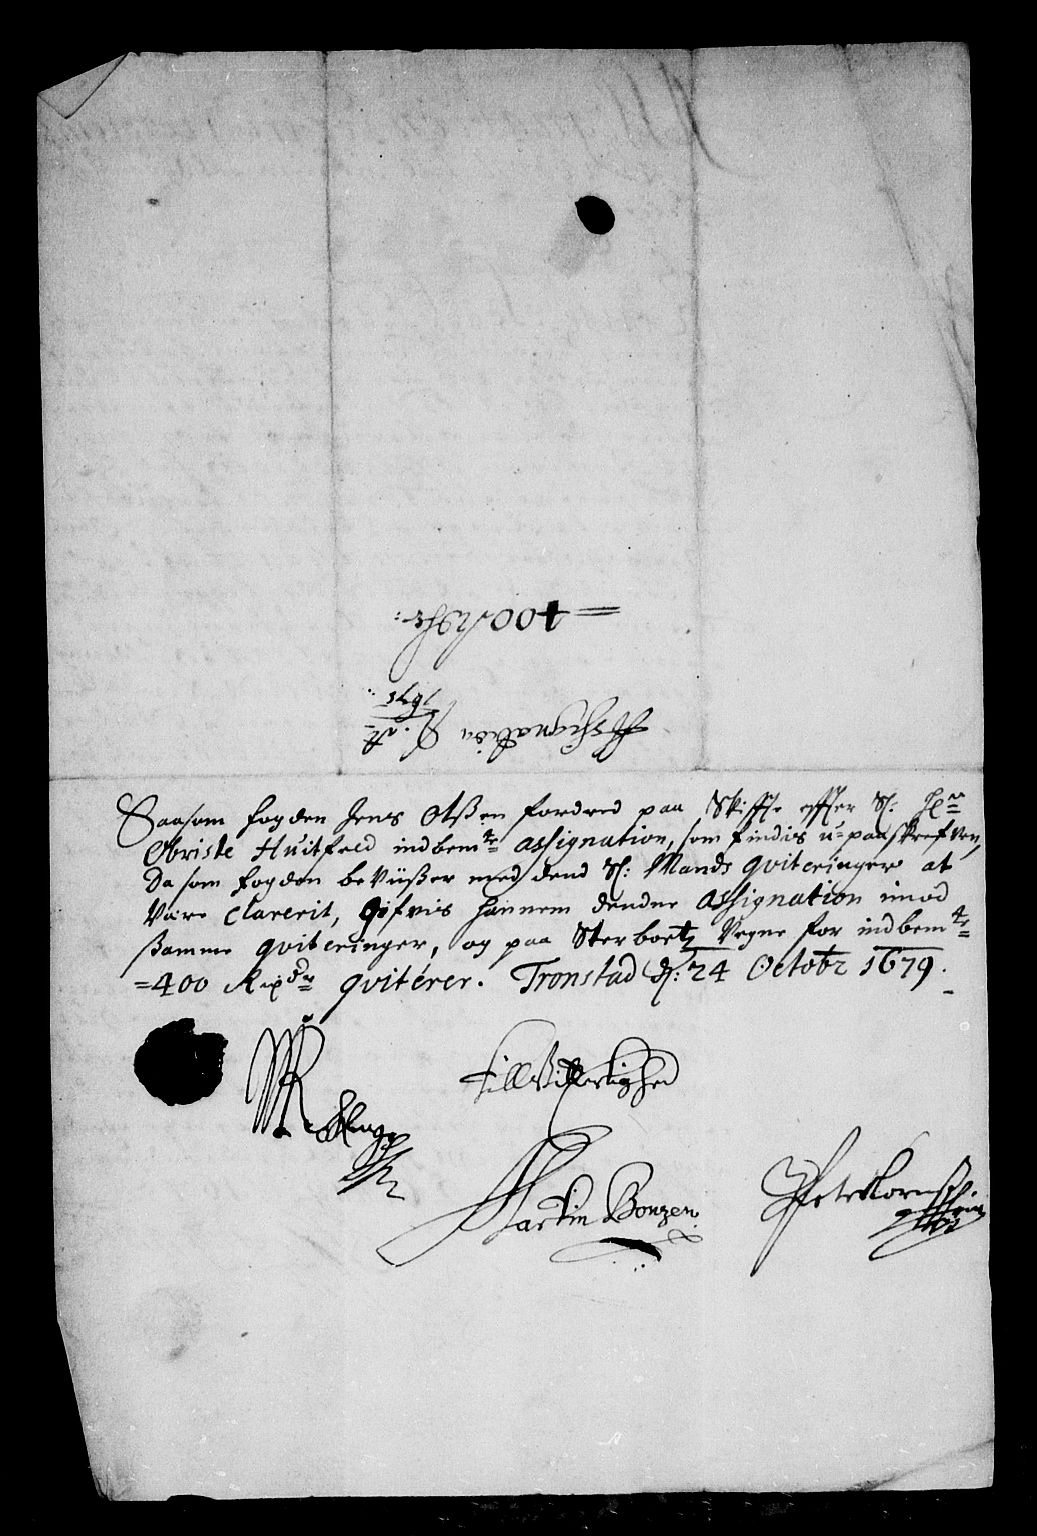 = 400 Rdr:
Assignation
1675
Saasom fogden Jens Olßen fordred paa Skiffte effter Sl: Hr
Obriste Huitfeld indbemte assignation, som findis u-paaskrefven,
Da som fogden beviißer med dend Sl: Mands qviteringer at
Være Clarerit, Gifvis hannem denne Assignation imod
ßamme qviteringer, og paa Sterboetz Vegne for indbemte
=400 Rixdr qviterer. Tronstad d: 24 Octobr 1679.
Till Vitterlighed
Martin Bonzen